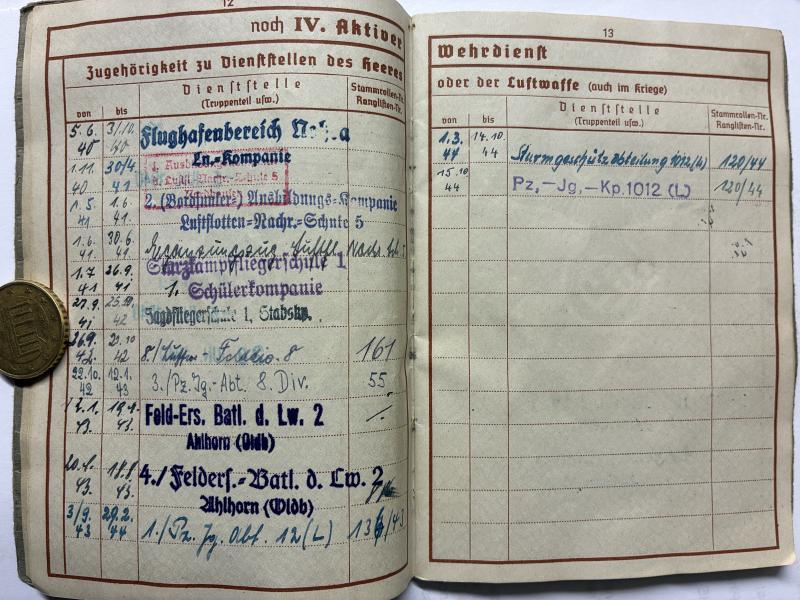 12
noch IV. Aktiver
Zugehörigkeit zu Dienststellen des Heeres
von
bis
Dienststelle
(Truppenteil usw.)
Stammrollen-Nr.
Ranglisten-Nr.
5.6. 40 31/10. 40 Flughafenbereich
Ln.-Kompanie
1.11. 40 30/4. 41
1.5. 41 1.6. 41 2. (Bordfunker-) Ausbildungs-Kompanie
Luftflotten-Nachr.-Schule 5
1.6. 41. 30.6. 41. Ergänzungszug Luftfl. Nachr.
1.7 41 26.9. 41 Sturzkampffliegerschule 1
1. Schülerkompanie
27.9. 41 25. 42 Jagdfliegerschule 1, Stabskp.
26.9. 42 21.10 42 8./ 8 161
22.10. 42 12.1. 43 3./Pz.Jg.-Abt. 8. Div. 55
12.1. 43. 43. Feld-Ers. Batl. d. Lw. 2 ./.
Ahlhorn (Oldb)
43. 18.8. 43. 4./ Felders.-Batl. d. Lw. 2
Ahlhorn (Oldb)
3/9. 43 29.2. 44 1./Pz. Jg. Abt. 12 (L)
13
Wehrdienst
oder der Luftwaffe (auch im Kriege)
von
bis
Dienststelle
(Truppenteil usw.)
Stammrollen-Nr.
Ranglisten-Nr.
1.3. 44 14.10. 44 Sturmgeschützabteilung 1012 (L) 120/44
15.10 44 Pz,-Jg,-Kp.1012 (L) 120/44